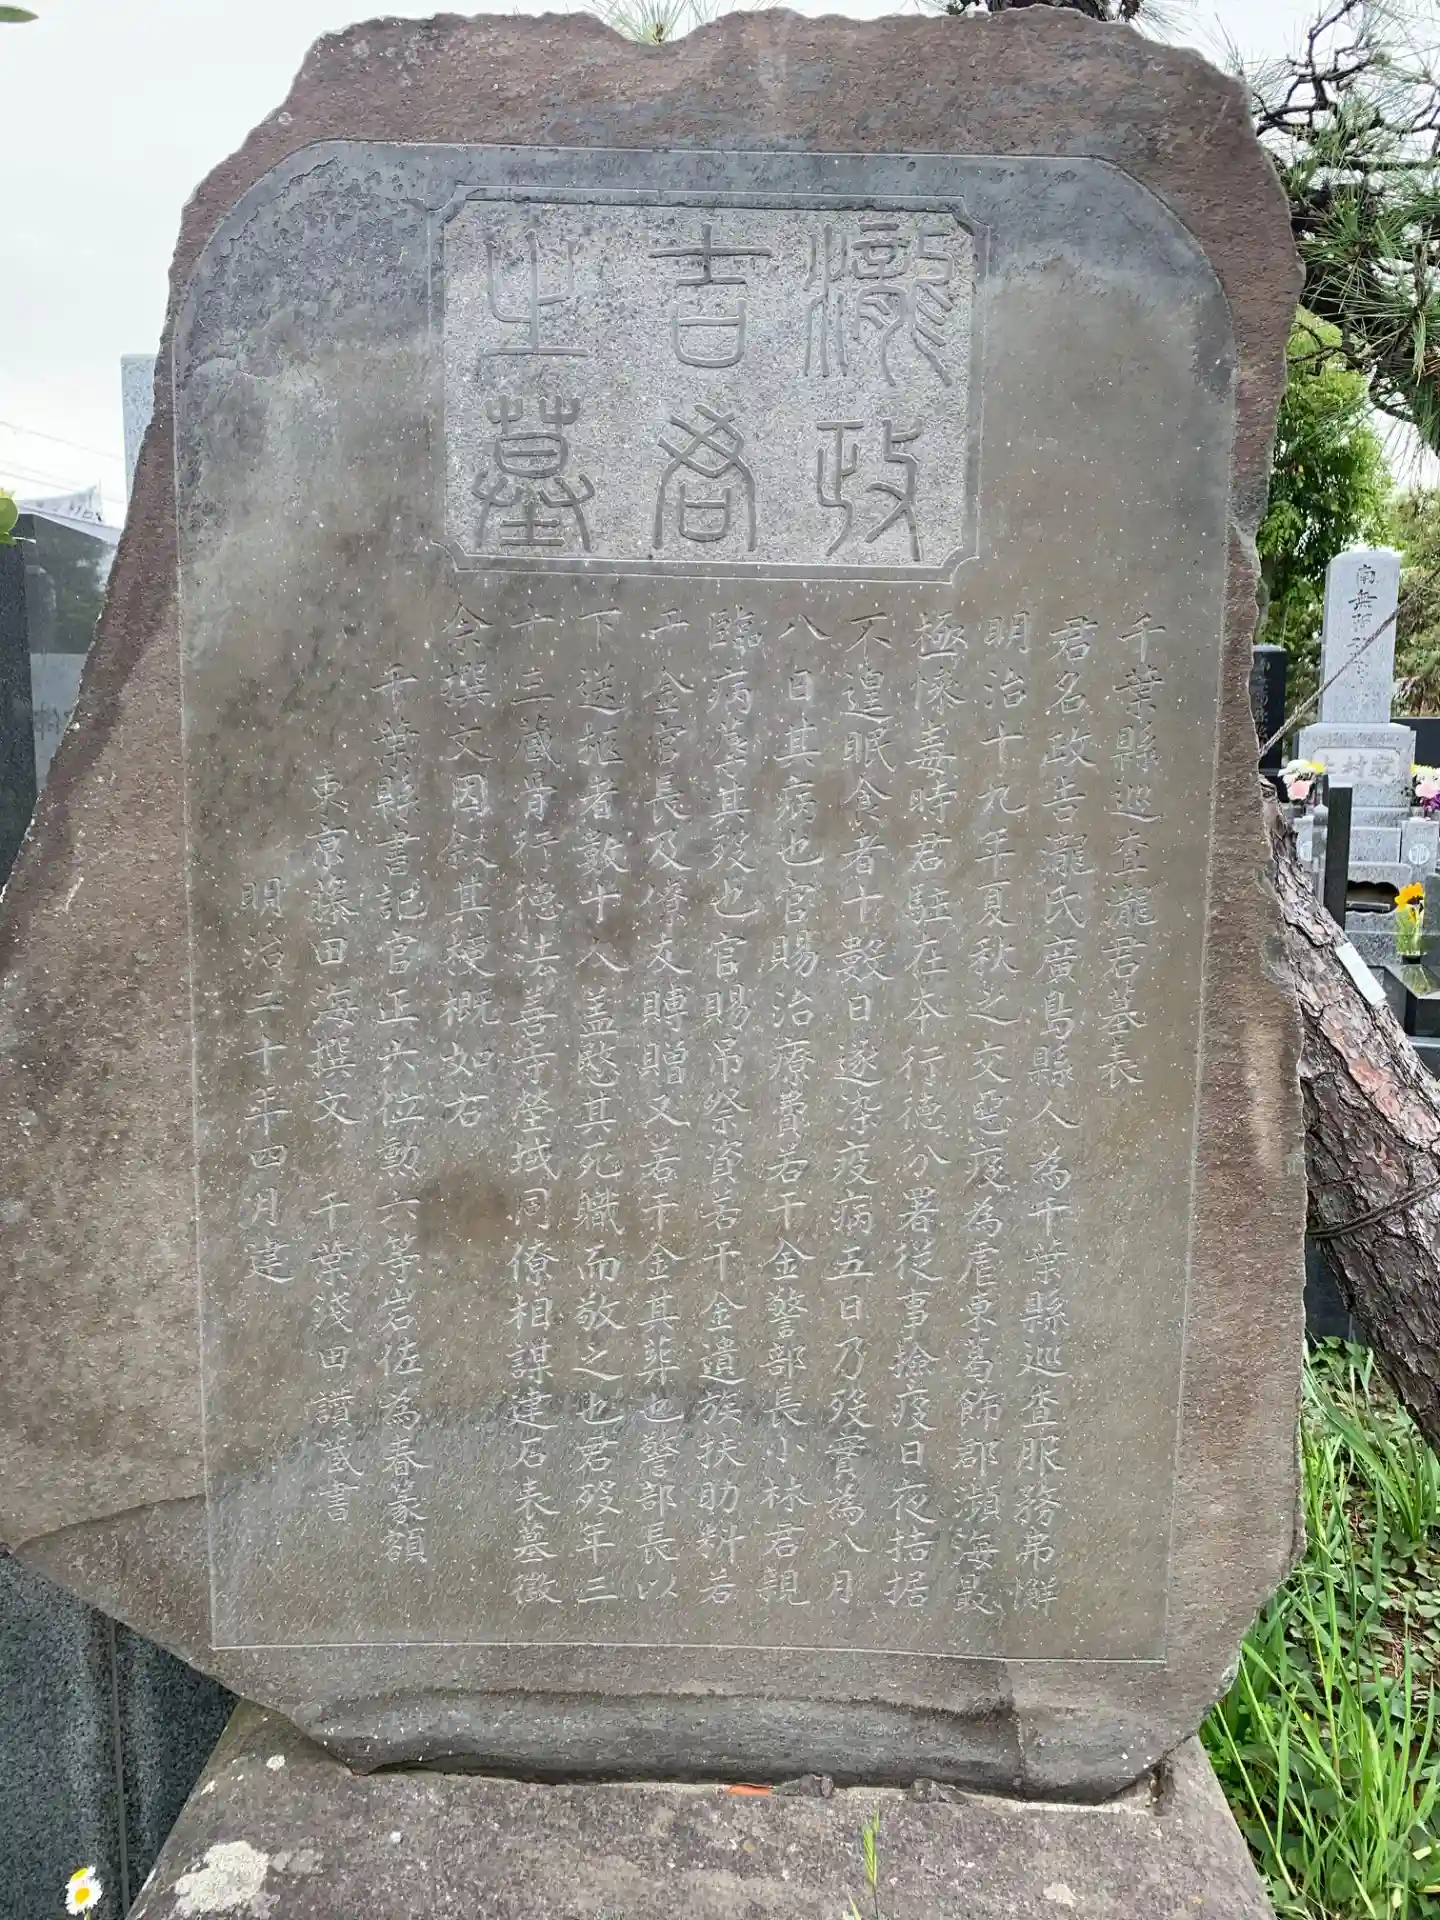 瀧政
吉君
之墓
千葉縣巡査瀧君墓表
君名政吉瀧氏廣島縣人為千葉縣巡査服務弗懈
明治十九年夏秋之交惡疫為虐東葛飾郡瀕海最
極惨毒時君駐在本行徳分署従事撿疫日夜拮据
不遑眠食者十數日遂染疫病五日乃歿實為八月
八日其病也官賜治療費若干金警部長小林君親
臨病其歿也官賜吊祭資若干金遺族扶助料若
干金官長及僚友賻贈又若干金其葬也警部長以
下送柩者數十人盖愍其死職而敬之也君歿年三
十三蔵骨行徳法善寺塋域同僚相謀建石表墓徴
余撰文因叙其梗概如右
千葉縣書記官正六位勲六等岩佐為春篆額
東京藤田海撰文 千葉淺田讃蔵書
明治二十年四月建
南無阿
家村